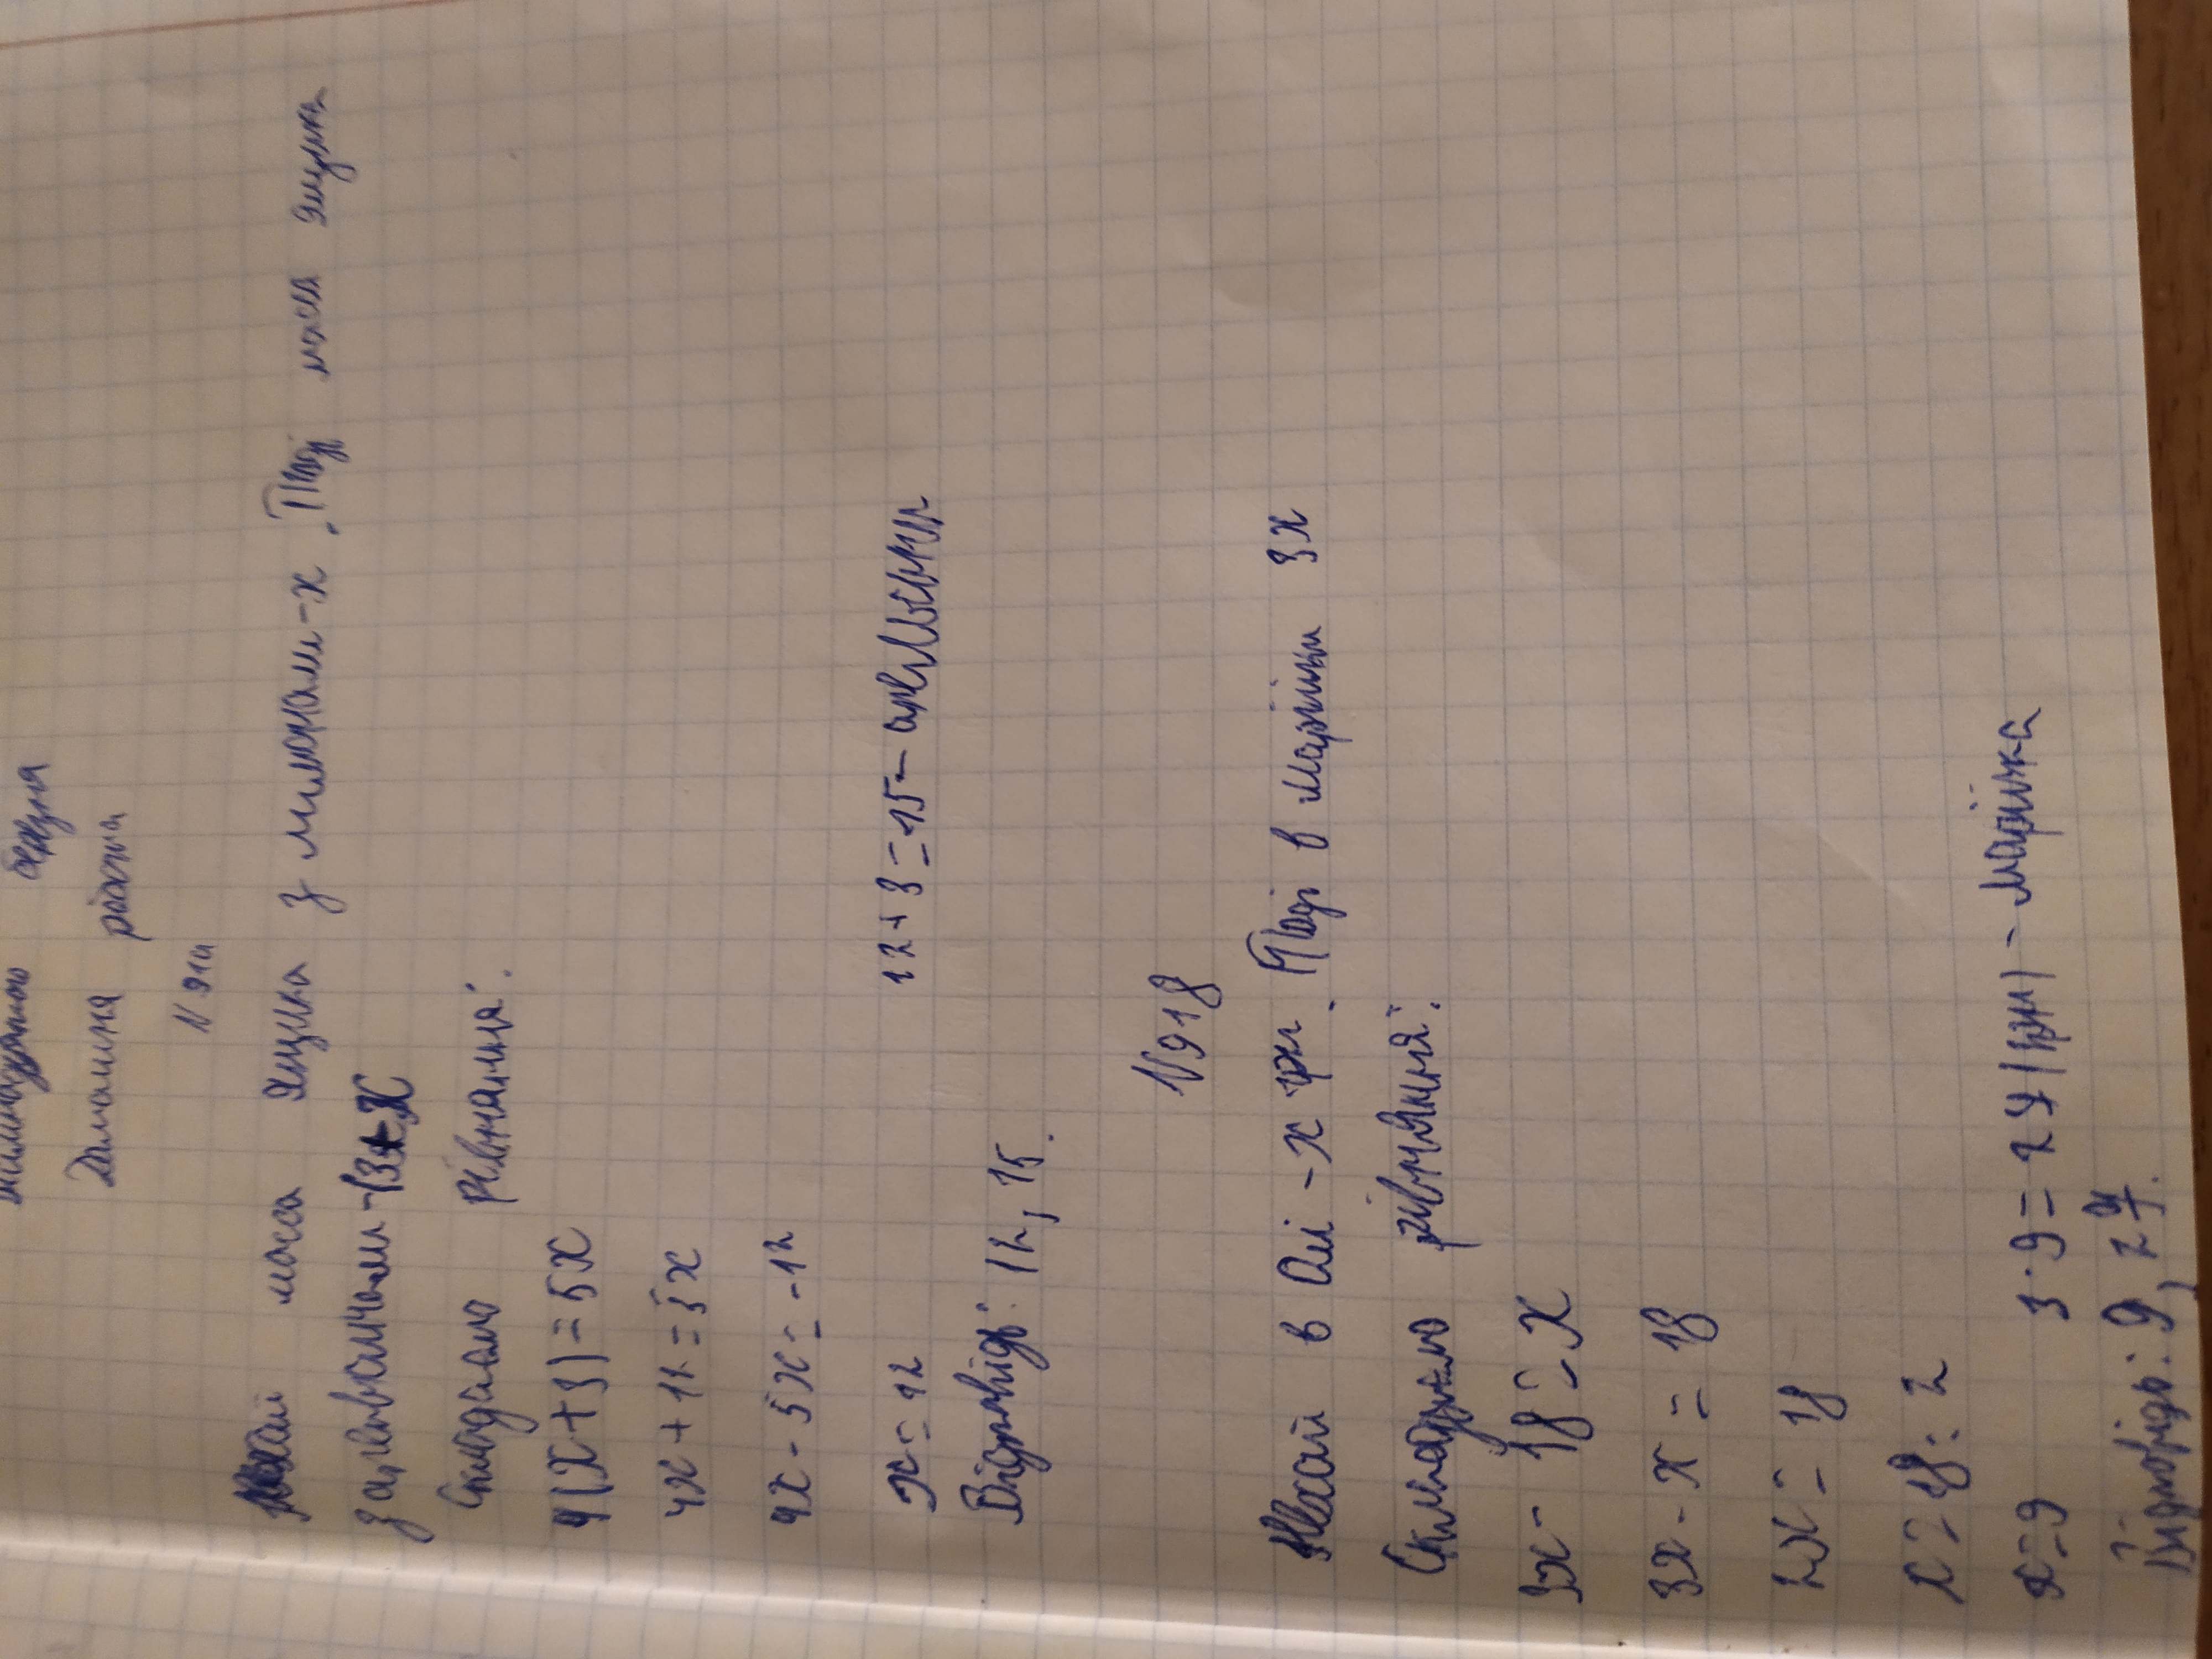 березня
Домашня робота
N 910
Нехай маса ящика з лимонами - x. Тоді маса ящика
з апельсинами - (3+x
Складаємо рівняння:
4(x+3)=5x
4x+12=5x
4x-5x=-12
x=12 12+3=15- апельсини
Відповідь: 12, 15.
N918
Нехай в Олі - x грн. Тоді в Марічки 3x
Складемо рівняння:
3x-18=x
3x-x=18
2x=18
x=18:2
x=9 3·9=27(грн) - Марічка
Відповідь: 9, 27.